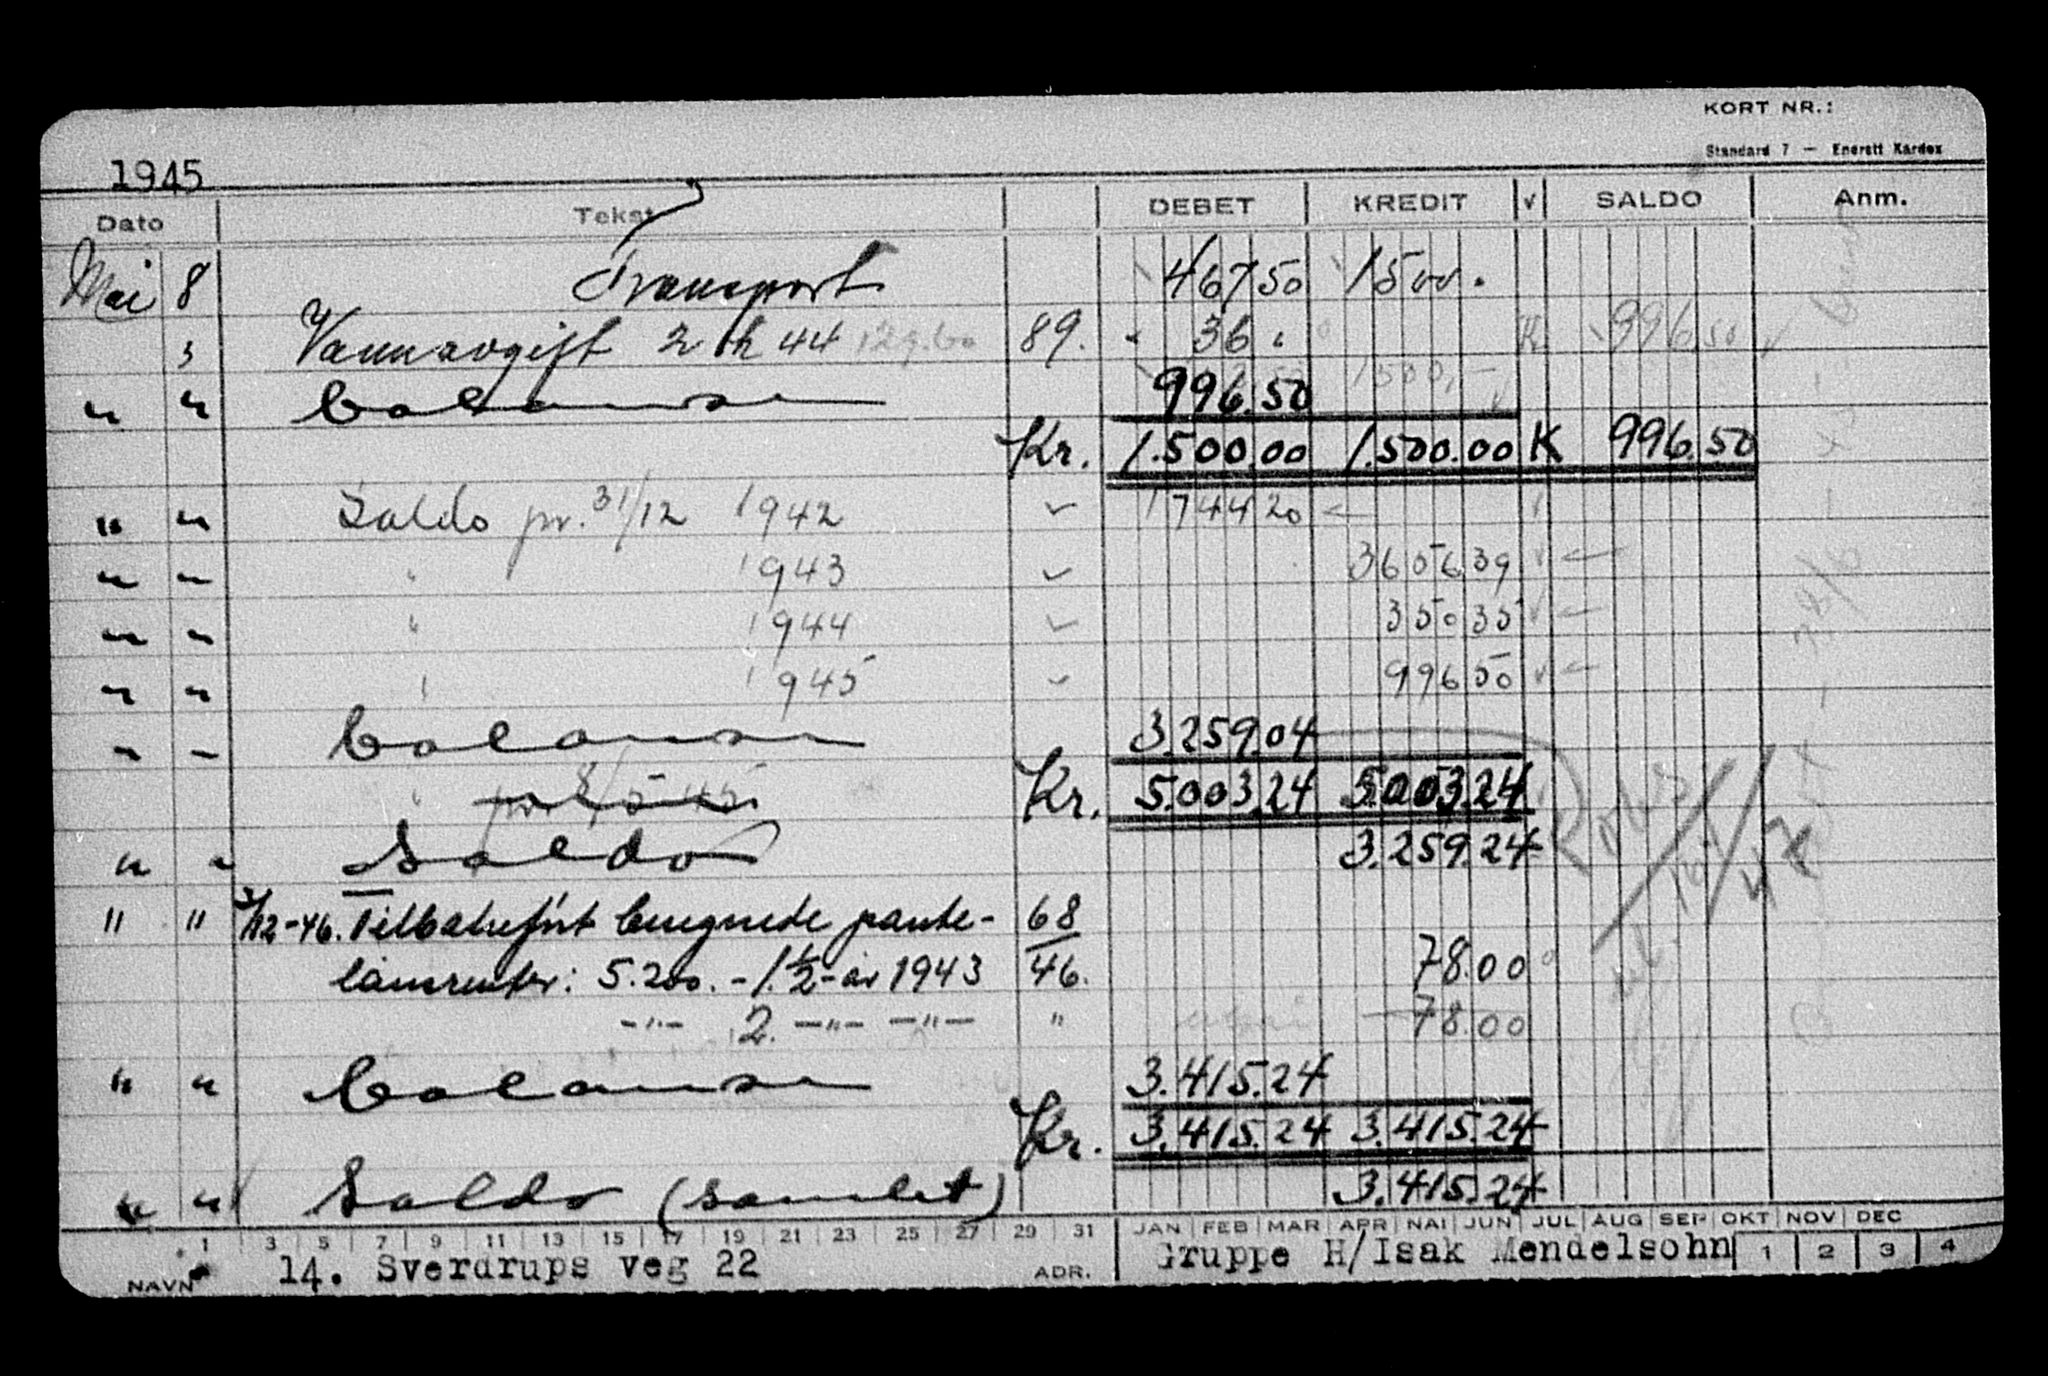 KORT NR.:
Standard 7 — Enerett Kardex
1945
Dato Tekst DEBET KREDIT v SALDO Anm.
Mai 8 Transport 467 50 1500.
3 Vannavgift 2 h 44 129.60 89. 36. K 996.50
" " balanse 996.50 1500,-
Kr. 1.500.00 1.500.00 K 996.50
" " Saldo pr. 31/12 1942 1744 20
" " " 1943 3656 39
" " " 1944 350 35
" " " 1945 996 50
" " balanse 3.259.04
" pr 8/5-45 Kr. 5.003.24 5.003.24
" " Saldo 3.259.24
" " 3/12-46. Tilbakeført beregnede pante- 68
lånsrenter: 5.200. - 1. ½-år 1943 46. 78.00
-"- 2. -"- -"- " 78.00
" " balanse 3.415.24
Kr. 3.415.24 3.415.24
" " Saldo (samlet) 3.415.24
1 3 5 7 9 11 13 15 17 19 21 23 25 27 29 31 JAN FEB MAR APR MAI JUN JUL AUG SEP OKT NOV DEC
NAVN 14. Sverdrups veg 22 ADR. Gruppe H/Isak Mendelsohn 1 2 3 4